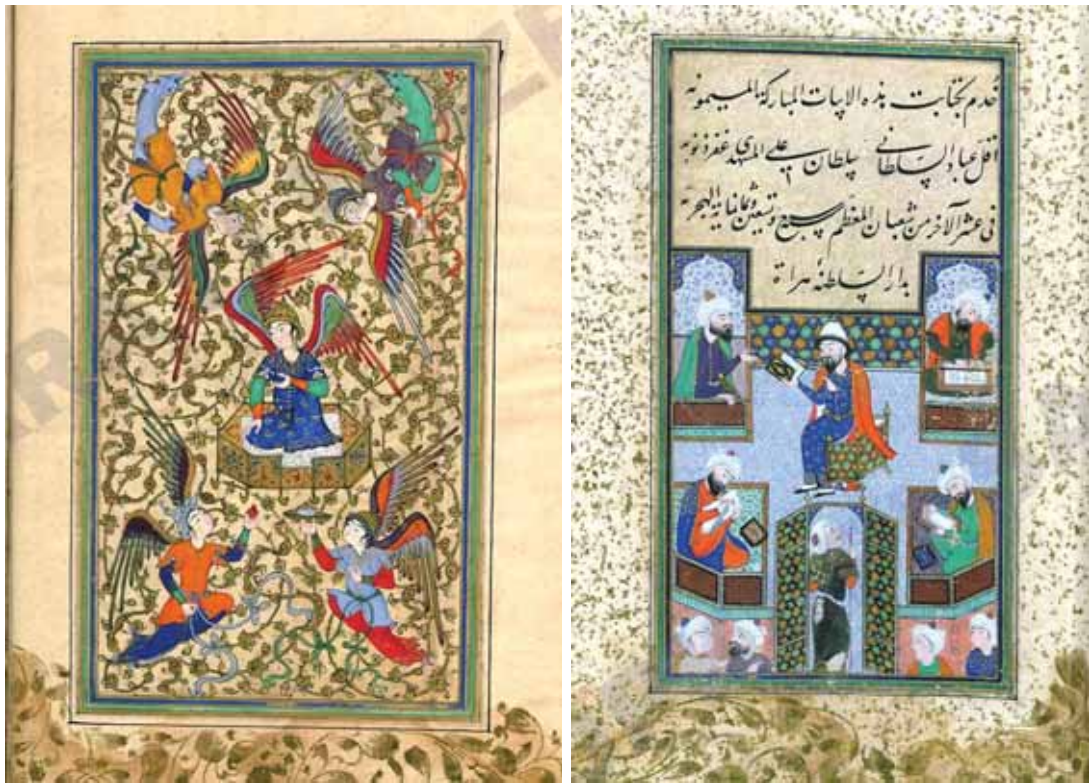 خدم بكتابت هذه الابيات المباركة الميمونه
اقل عباد السلطانى سلطان على المشهدى غفر ذنوبه
فى عشر الآخر من شعبان المعظم سبع وتسعين وثمانمايه الهجريه
بدار السلطنه هراة